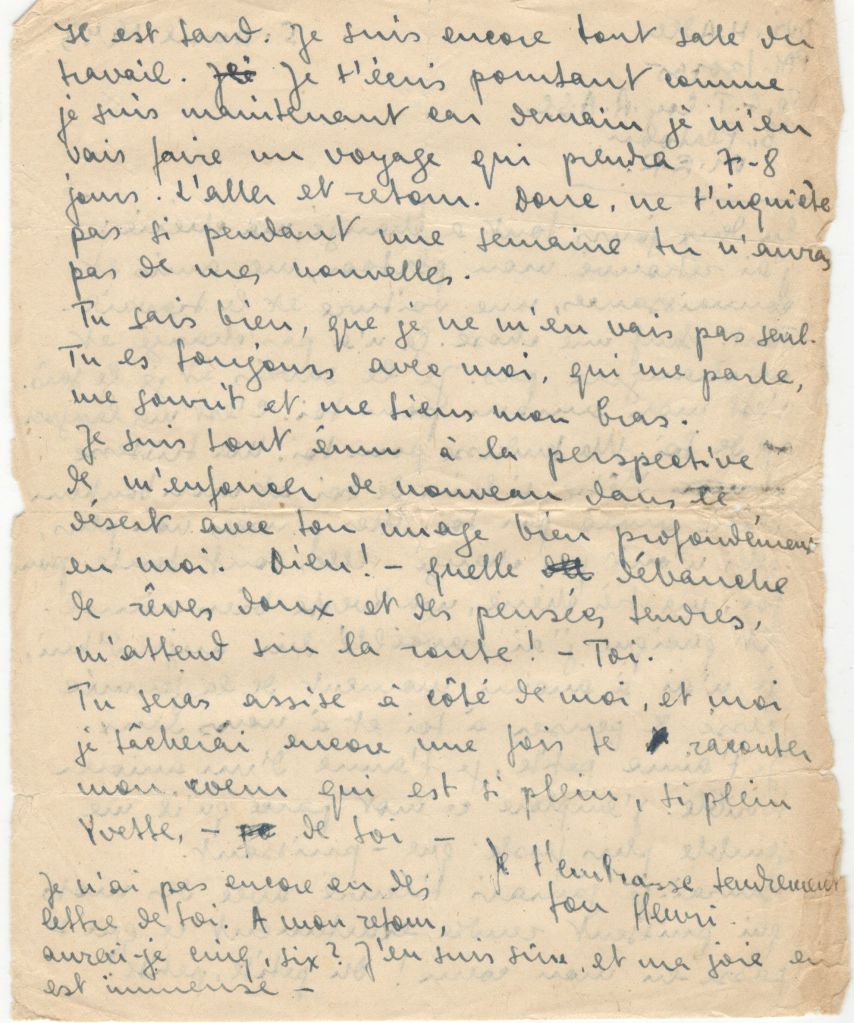 Il est tard. Je suis encore tout sale du
travail. Je t'écris pourtant comme
je suis maintenant car demain je m'en
vais faire un voyage qui prendra 7-8
jours. L'aller et retour. Donc, ne t'inquiète
pas si pendant une semaine tu n'auras
pas de mes nouvelles.
Tu sais bien, que je ne m'en vais pas seul.
Tu es toujours avec moi, qui me parle,
me sourit et me tiens mon bras.
Je suis tout ému à la perspective
de m'enfoncer de nouveau dans le
désert avec ton image bien profondément
en moi. Dieu! - quelle débauche
de rêves doux et des pensées tendres,
m'attend sur la route! - Toi.
Tu seras assise à côté de moi, et moi
je tâcherai encore une fois te raconter
mon coeur qui est si plein, si plein
Yvette, - de toi -
Je t'embrasse tendrement
ton Henri.
Je n'ai pas encore eu des
lettre de toi. A mon retour,
aurai-je cinq, six? J'en suis sûre, et ma joie en
est immense -